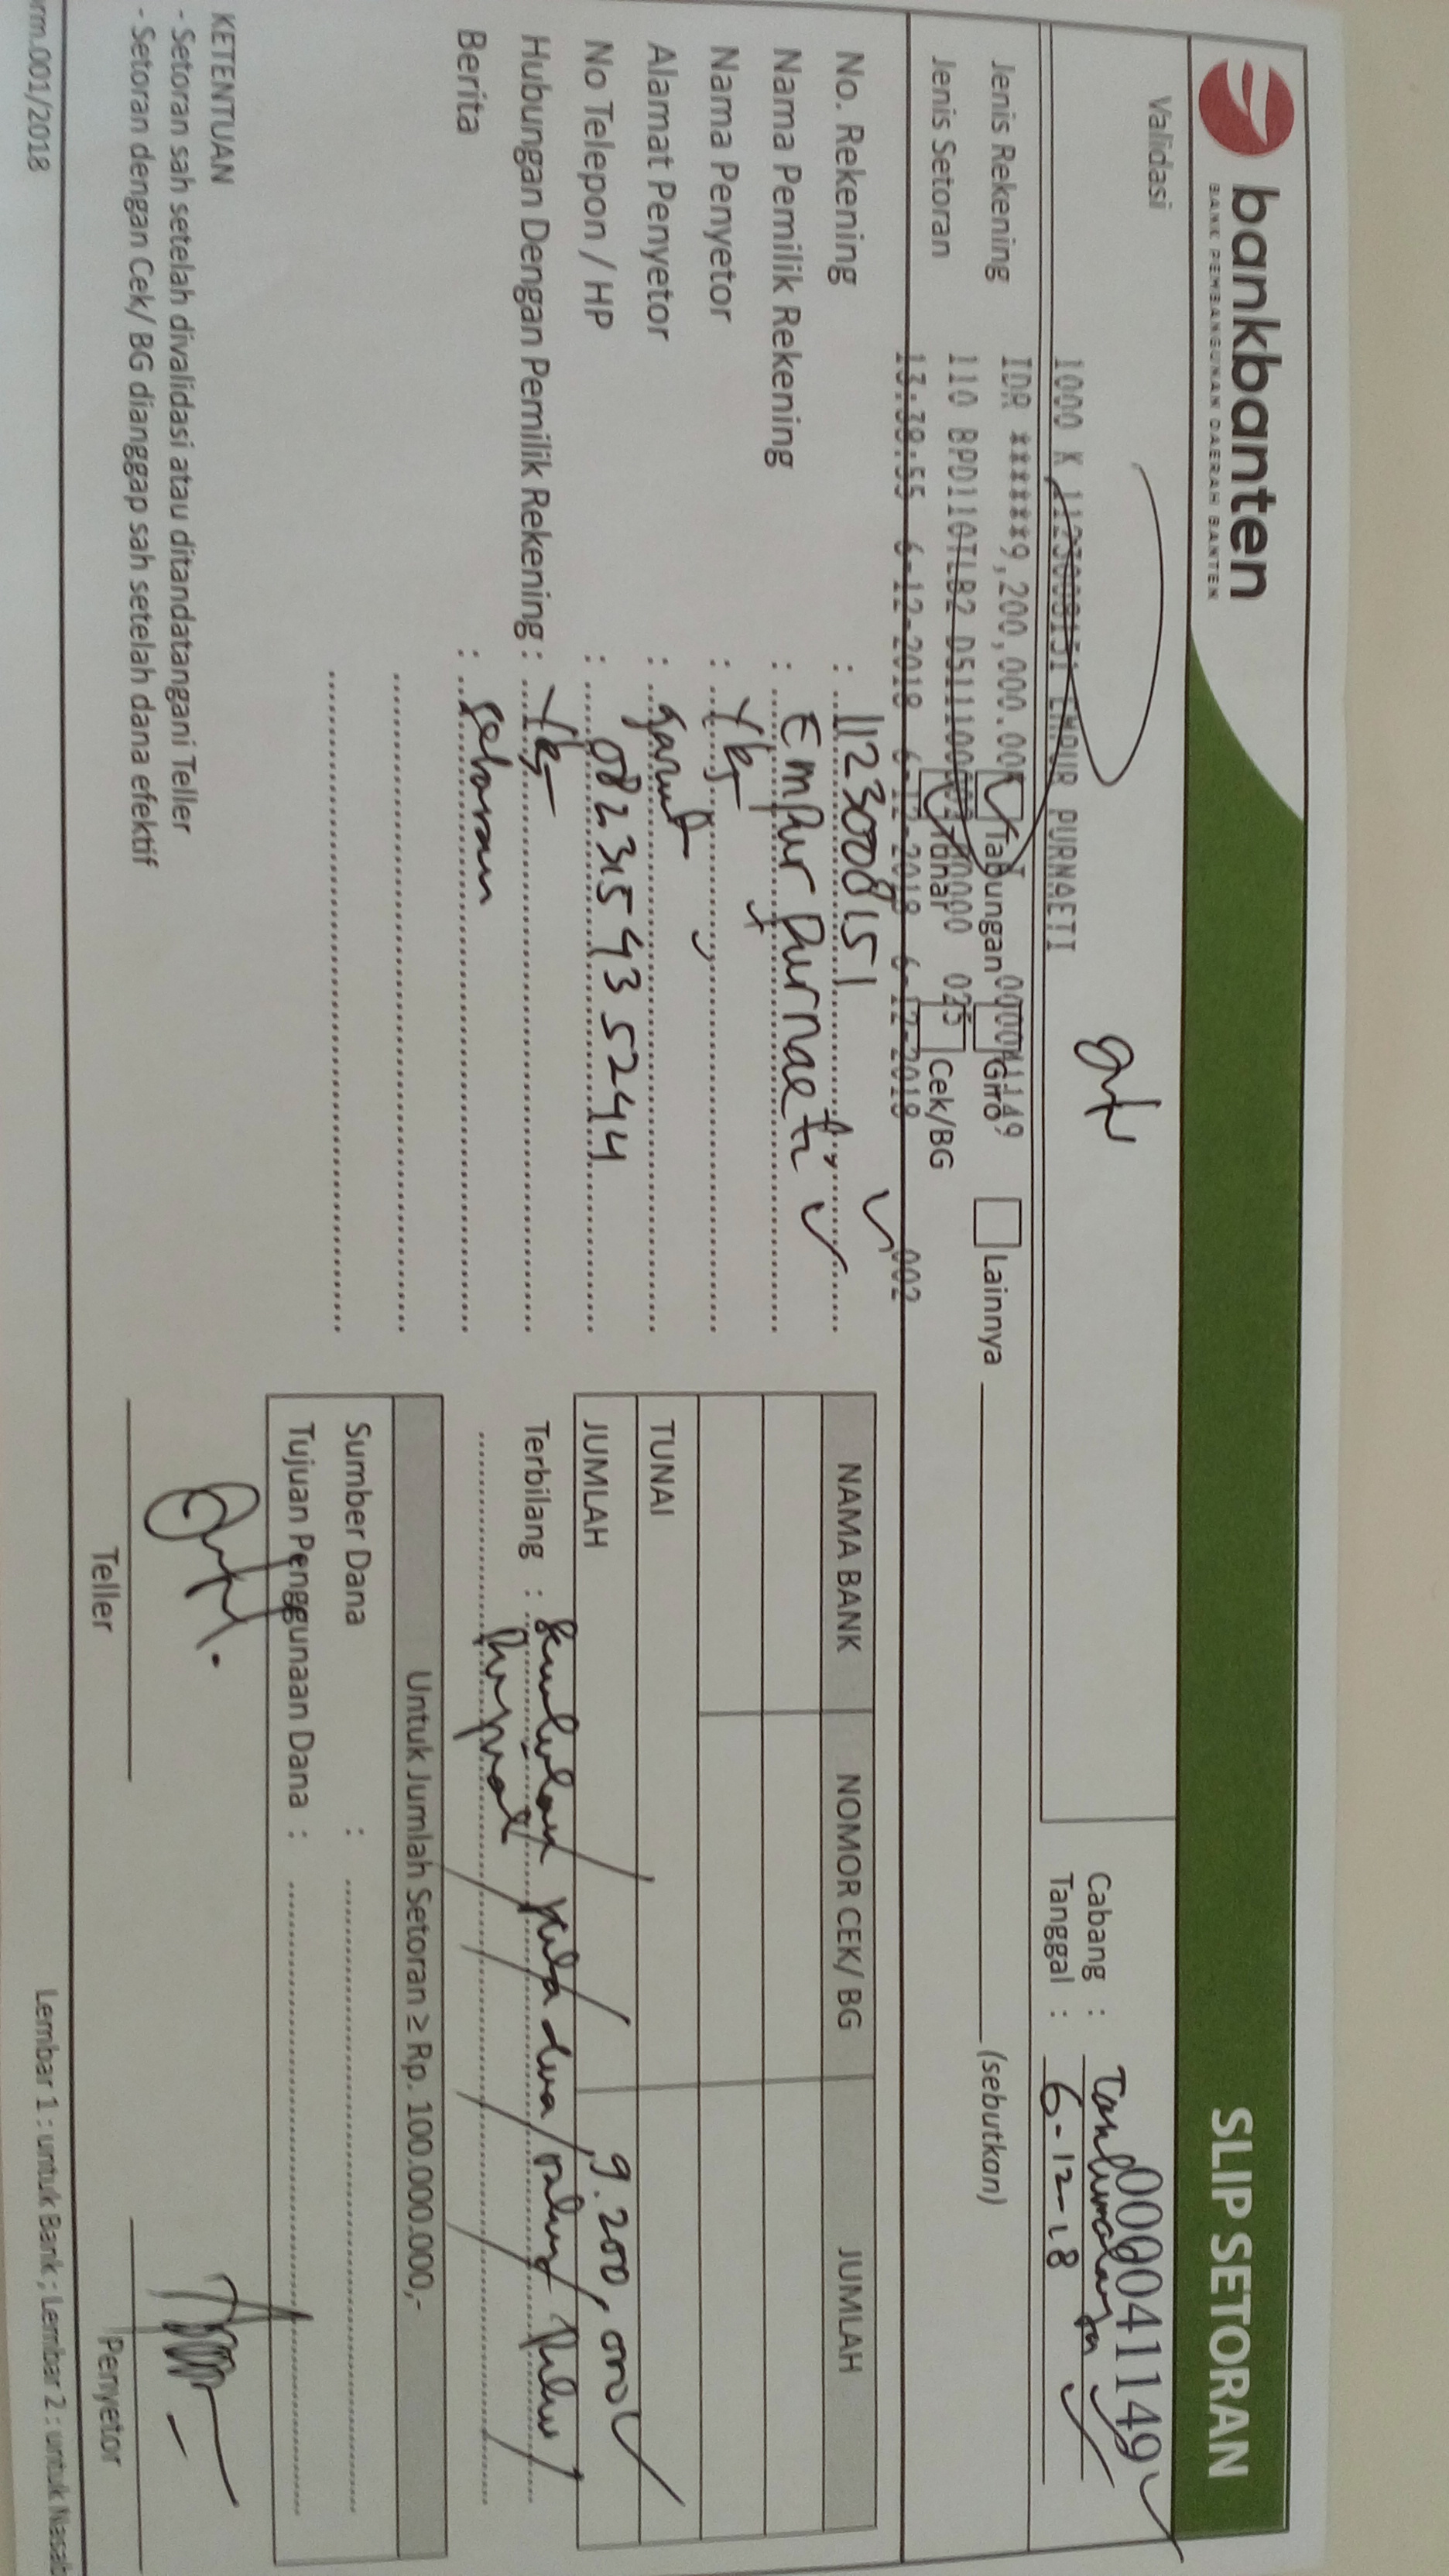 bankbanten
BANK PEMBANGUNAN DAERAH BANTEN
SLIP SETORAN
0000041149
Validasi
Cabang :
Tanggal : 6-12-18
1000 K 1123008151 EMPUR PURNAETI
IDR *******9,200,000.00 00041149
Jenis Rekening Tabungan Giro Lainnya (sebutkan)
110 BPD110TLB2 0000 025
Jenis Setoran Tunai Cek/BG
13:39:55 6-12-2018 6-12-2018 6-12-2018 002
No. Rekening : 1123008151
Nama Pemilik Rekening : Empur Purnaeti
Nama Penyetor : Ybs
Alamat Penyetor : garut
No Telepon / HP : 082315935244
Hubungan Dengan Pemilik Rekening : Ybs
Berita : setoran
NAMA BANK NOMOR CEK/ BG JUMLAH
TUNAI
JUMLAH 9.200,000
Terbilang : Sembilan juta dua ratus ribu
Rupiah
Untuk Jumlah Setoran ≥ Rp. 100.000.000,-
Sumber Dana :
Tujuan Penggunaan Dana :
KETENTUAN
- Setoran sah setelah divalidasi atau ditandatangani Teller
- Setoran dengan Cek/ BG dianggap sah setelah dana efektif
Teller
Penyetor
rm.001/2018
Lembar 1 : untuk Bank ; Lembar 2 : untuk Nasab